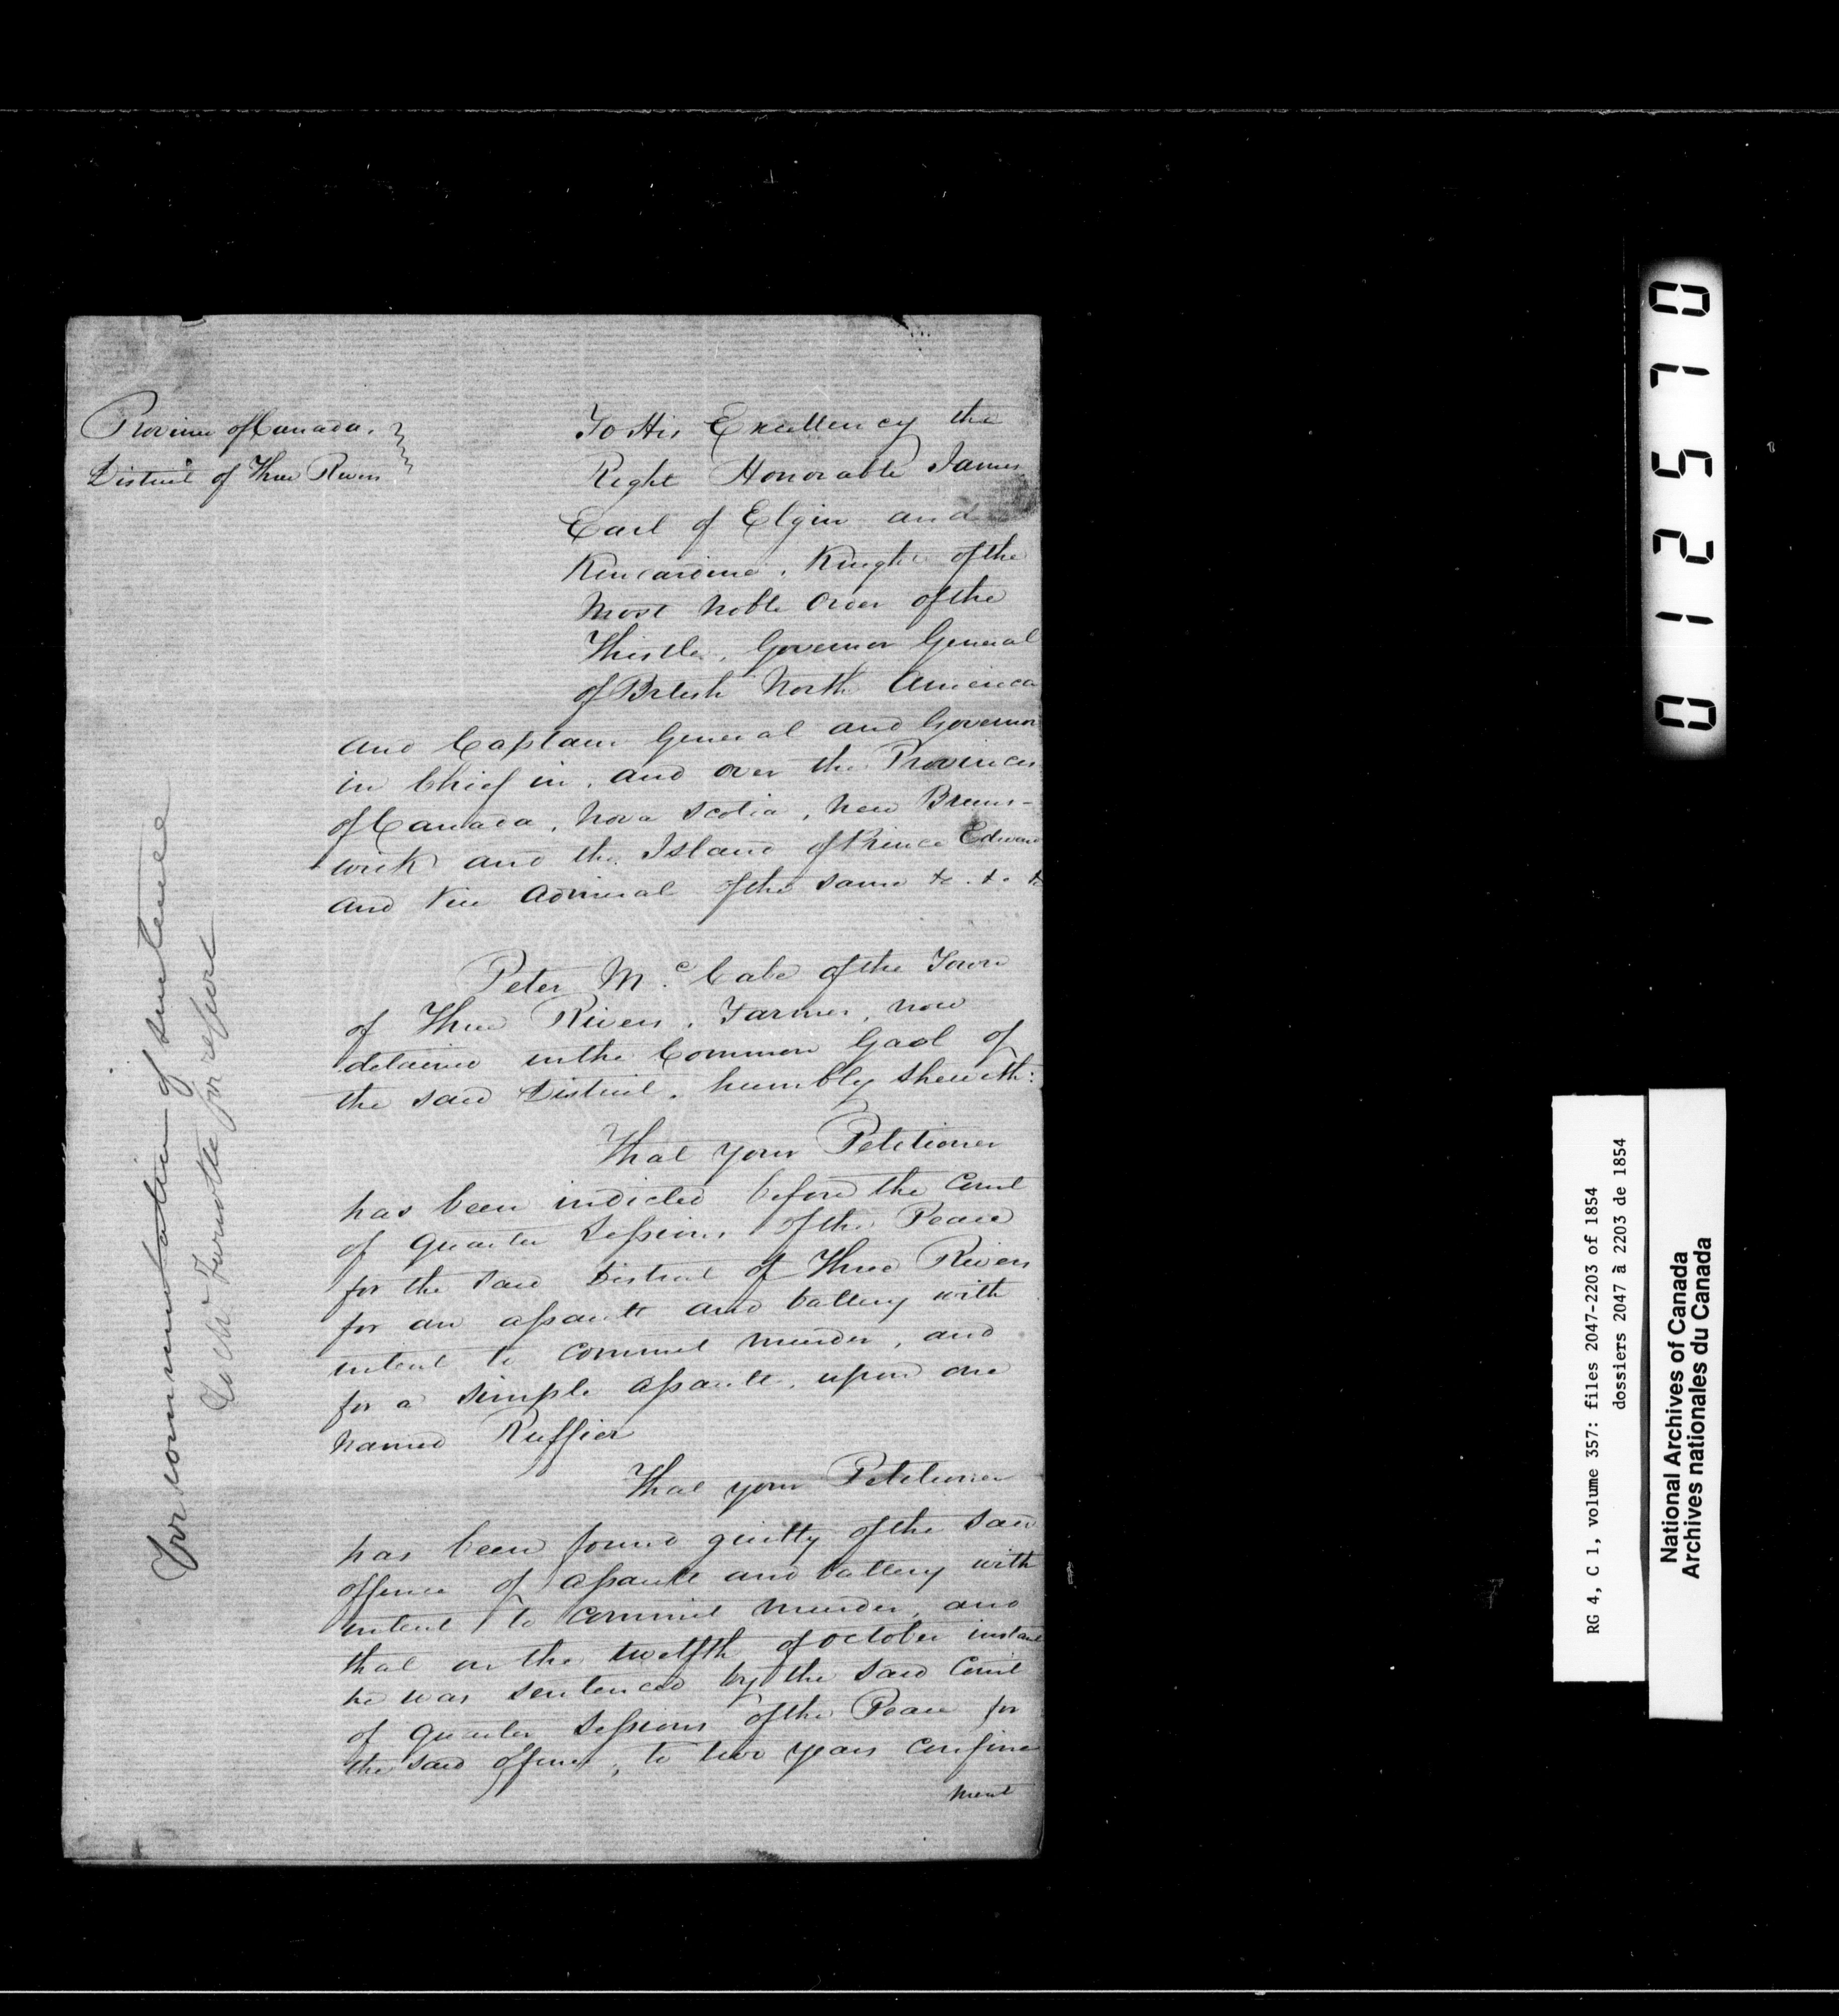 Province of Canada.
District of Three Rivers
To His Excellency the
Right Honorable James
Earl of Elgin and
Kincardine, Knight of the
Most noble Order of the
Thistle, Governor General
of British North America
and Captain General and Governor
in Chief in, and over the Provinces
of Canada, Nova Scotia, New Bruns-
wick and the Island of Prince Edward
and Vice Admiral of the same &c. &c. &c
Peter Mc. Cabe of the Town
of Three Rivers, Farmer, now
detained in the Common Gaol of
the said District, humbly sheweth:
That your Petitioner
has been indicted before the Court
of Quarter Sessions of the Peace
for the said District of Three Rivers
for an assault and battery with
intent to commit murder, and
for a simple assault, upon one
named Ruffier
That your Petitioner
has been found guilty of the said
offence of assault and battery with
intent to commit murder, and
that on the twelfth of October instant
he was sentenced by the said Court
of Quarter Sessions of the Peace for
the said offence, to two years confine
ment
For commutation of sentence
To Mr Turcotte for report
0 1 2 5 7 0
RG 4, C 1, volume 357: files 2047-2203 of 1854
dossiers 2047 à 2203 de 1854
National Archives of Canada
Archives nationales du Canada